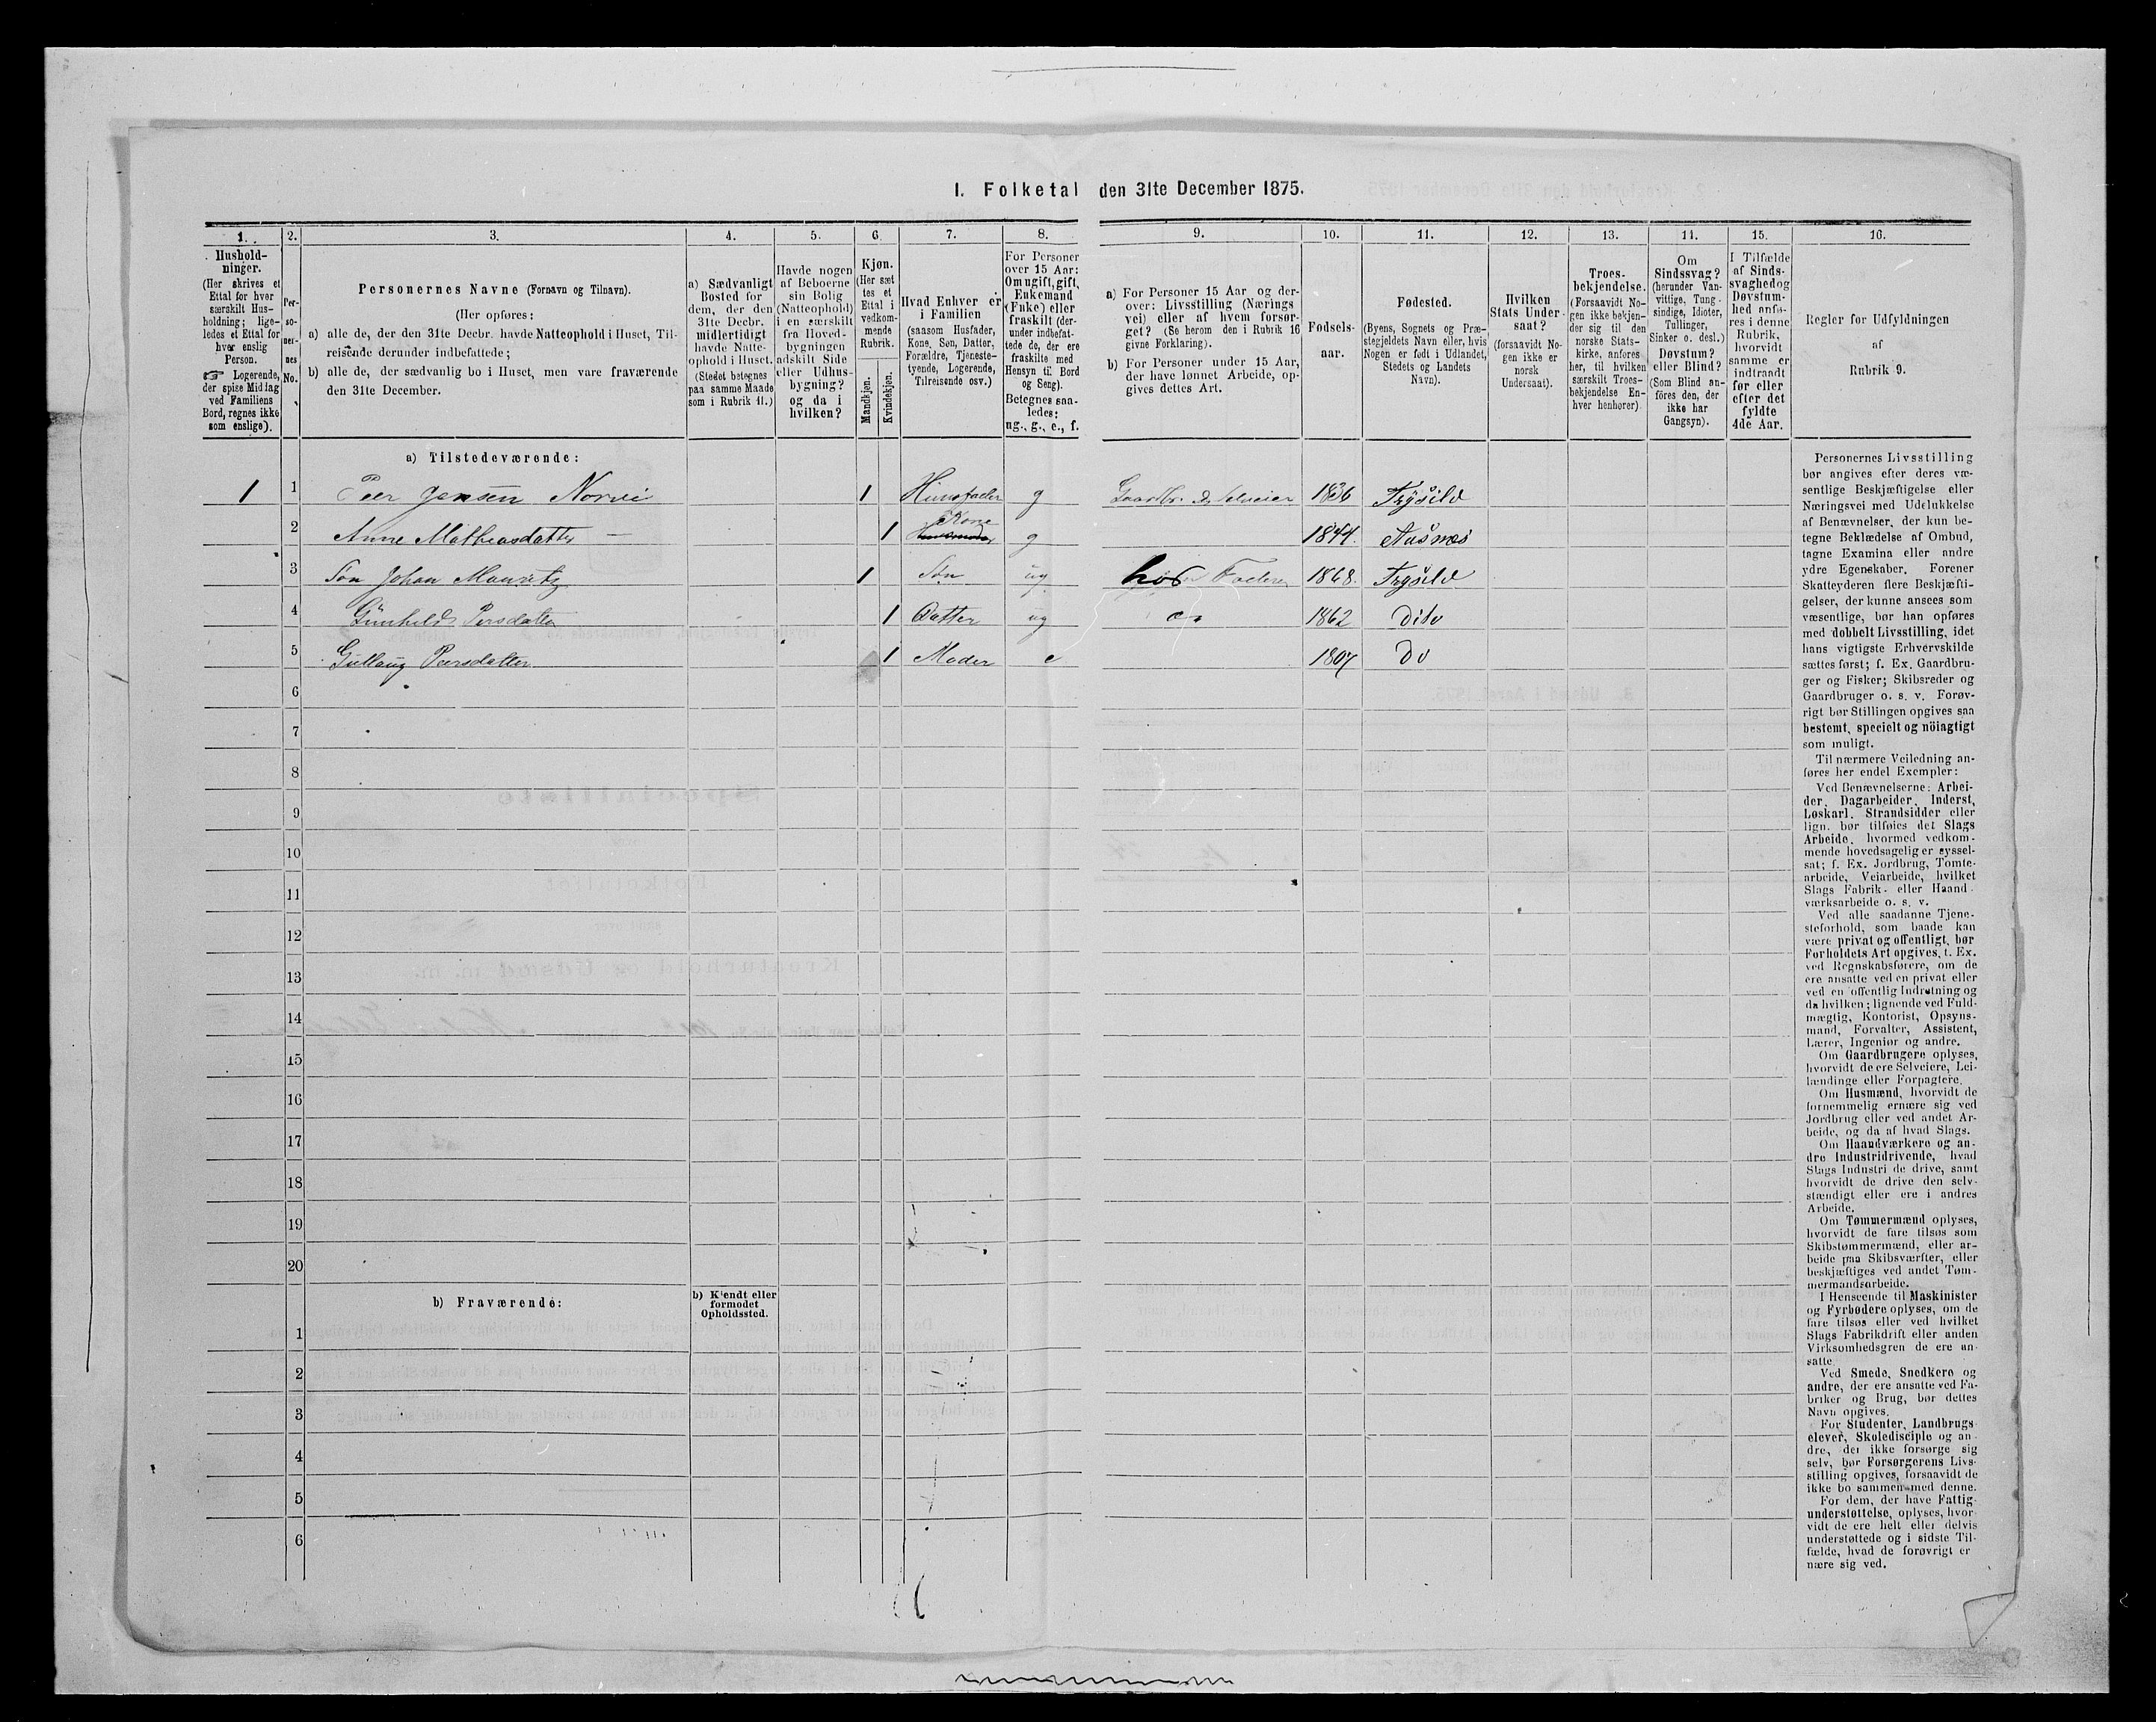 I. Folketal den 31te December 1875.
1. 2. 3. 4. 5. 6. 7. 8. 9. 10. 11. 12. 13. 14. 15. 16.
Hushold-
ninger.
(Her skrives et
Ettal for hver
særskilt Hus-
holdning; lige-
ledes et Ettal for
hver enslig
Person.
☞ Logerende,
der spise Middag
ved Familiens
Bord, regnes ikke
som enslige).
Per-
so-
ner-
nes
No.
Personernes Navne (Fornavn og Tilnavn).
(Her opføres:
a) alle de, der den 31te Decbr. havde Natteophold i Huset, Til-
reisende derunder indbefattede;
b) alle de, der sædvanlig bo i Huset, men vare fraværende
den 31te December.
a) Sædvanligt
Bosted for
dem, der den
31te Decbr.
midlertidigt
havde Natte-
ophold i Huset.
(Stedet betegnes
paa samme Maade
som i Rubrik 11.)
Havde nogen
af Beboerne
sin Bolig
(Natteophold)
i en særskilt
fra Hoved-
bygningen
adskilt Side
eller Udhus-
bygning?
og da i
hvilken?
Kjøn.
(Her sæt
tes et
Ettal i
vedkom-
mende
Rubrik.
Mandkjøn.
Kvindekjøn.
Hvad Enhver er
i Familien
(saasom Husfader,
Kone, Søn, Datter,
Forældre, Tjeneste-
tyende, Logerende,
Tilreisende osv.)
For Personer
over 15 Aar:
Om ugift, gift,
Enkemand
(Enke) eller
fraskilt (der-
under indbefat-
tede de, der ere
fraskilte med
Hensyn til Bord
og Seng).
Betegnes saa-
ledes:
ug., g., e., f.
a) For Personer 15 Aar og der-
over: Livsstilling (Nærings
vei) eller af hvem forsør-
get? (Se herom den i Rubrik 16
givne Forklaring).
b) For Personer under 15 Aar,
der have lønnet Arbeide, op-
gives dettes Art.
Fødsels-
aar.
Fødested.
(Byens, Sognets og Præ-
stegjeldets Navn eller, hvis
Nogen er født i Udlandet,
Stedets og Landets
Navn).
Hvilken
Stats Under-
saat?
(forsaavidt No-
gen ikke er
norsk
Undersaat).
Troes-
bekjendelse.
(Forsaavidt No-
gen ikke bekjen-
der sig til den
norske Stats-
kirke, anføres
her, til hvilken
særskilt Troes-
bekjendelse En-
hver henhører).
Om
Sindssvag?
(herunder Van-
vittige, Tung-
sindige, Idioter,
Tullinger,
Sinker o. desl.)
Døvstum?
eller Blind?
(Som Blind an-
föres den, der
ikke har
Gangsyn).
I Tilfælde
af Sinds-
svaghed og
Døvstum-
hed anfø-
res i denne
Rubrik,
hvorvidt
samme er
indtraadt
før eller
efter det
fyldte
4de Aar.
Regler for Udfyldningen
af
Rubrik 9.
a) Tilstedeværende:
1 1 Peer Jensen Norvi 1 Huusfader g Gaardbr. & Selveier 1836 Trysild
2 Anne Mathiasdatter — 1 Kone g 1844. Aasnæs
3 Søn Johan Mauritz 1 Søn ug. hos Faderen 1868. Trysild
4 Gunhild Persdatter 1 Datter ug 1862 Dito
5 Gullaug Peersdatter 1 Moder e 1807 Do
6
7
8
9
10
11
12
13
14
15
16
17
18
19
20
b) Fraværende:
b) Kjendt eller
formodet
Opholdssted.
1
2
3
4
5
6
Personernes Livsstilling
bør angives efter deres væ-
sentlige Beskjæftigelse eller
Næringsvei med Udelukkelse
af Benævnelser, der kun be-
tegne Beklædelse af Ombud,
tagne Examina eller andre
ydre Egenskaber. Forener
Skatteyderen flere Beskjæfti-
gelser, der kunne ansees som
væsentlige, bør han opføres
med dobbelt Livsstilling, idet
hans vigtigste Erhvervskilde
sættes først; f. Ex. Gaardbru-
ger og Fisker; Skibsreder og
Gaardbruger o. s. v. Forøv-
rigt bør Stillingen opgives saa
bestemt, specielt og nöiagtigt
som muligt.
Til nærmere Veiledning an-
føres her endel Exempler:
Ved Benævnelserne: Arbei-
der, Dagarbeider, Inderst,
Løskarl, Strandsidder eller
lign. bør tilføies det Slags
Arbeide, hvormed vedkom-
mende hovedsagelig er syssel-
sat; f. Ex. Jordbrug, Tomte-
arbeide, Veiarbeide, hvilket
Slags Fabrik- eller Haand-
værksarbeide o. s. v.
Ved alle saadanne Tjene-
steforhold, som baade kan
være privat og offentligt, bør
Forholdets Art opgives, f. Ex.
ved Regnskabsførere, om de
ere ansatte ved en privat eller
ved en offentlig Indretning og
da hvilken; lignende ved Fuld-
mægtig, Kontorist, Opsyns-
mand, Forvalter, Assistent,
Lærer, Ingeniør og andre.
Om Gaardbrugere oplyses,
hvorvidt de ere Selveiere, Lei-
lændinge eller Forpagtere.
Om Husmænd, hvorvidt de
fornemmelig ernære sig ved
Jordbrug eller ved andet Ar-
beide, og da af hvad Slags.
Om Haandværkere og an-
dre Industridrivende, hvad
Slags Industri de drive, samt
hvorvidt de drive den selv-
stændigt eller ere i andres
Arbeide.
Om Tømmermænd oplyses,
hvorvidt de fare tilsøs som
Skibstømmermænd, eller ar-
beide paa Skibsværfter, eller
beskjæftiges ved andet Tøm-
mermandsarbeide.
I Henseende til Maskinister
og Fyrbødere oplyses, om de
fare tilsøs eller ved hvilket
Slags Fabrikdrift eller anden
Virksomhedsgren de ere an-
satte.
Ved Smede, Snedkere og
andre, der ere ansatte ved Fa-
briker og Brug, bør dettes
Navn opgives.
For Studenter, Landbrugs-
elever, Skoledisciple og an-
dre, der ikke forsørge sig
selv, bør Forsørgerens Livs-
stilling opgives, forsaavidt de
ikke bo sammen med denne.
For dem, der have Fattig-
understøttelse, oplyses, hvor-
vidt de ere helt eller delvis
understøttede og i sidste Til-
fælde, hvad de forøvrigt er-
nære sig ved.